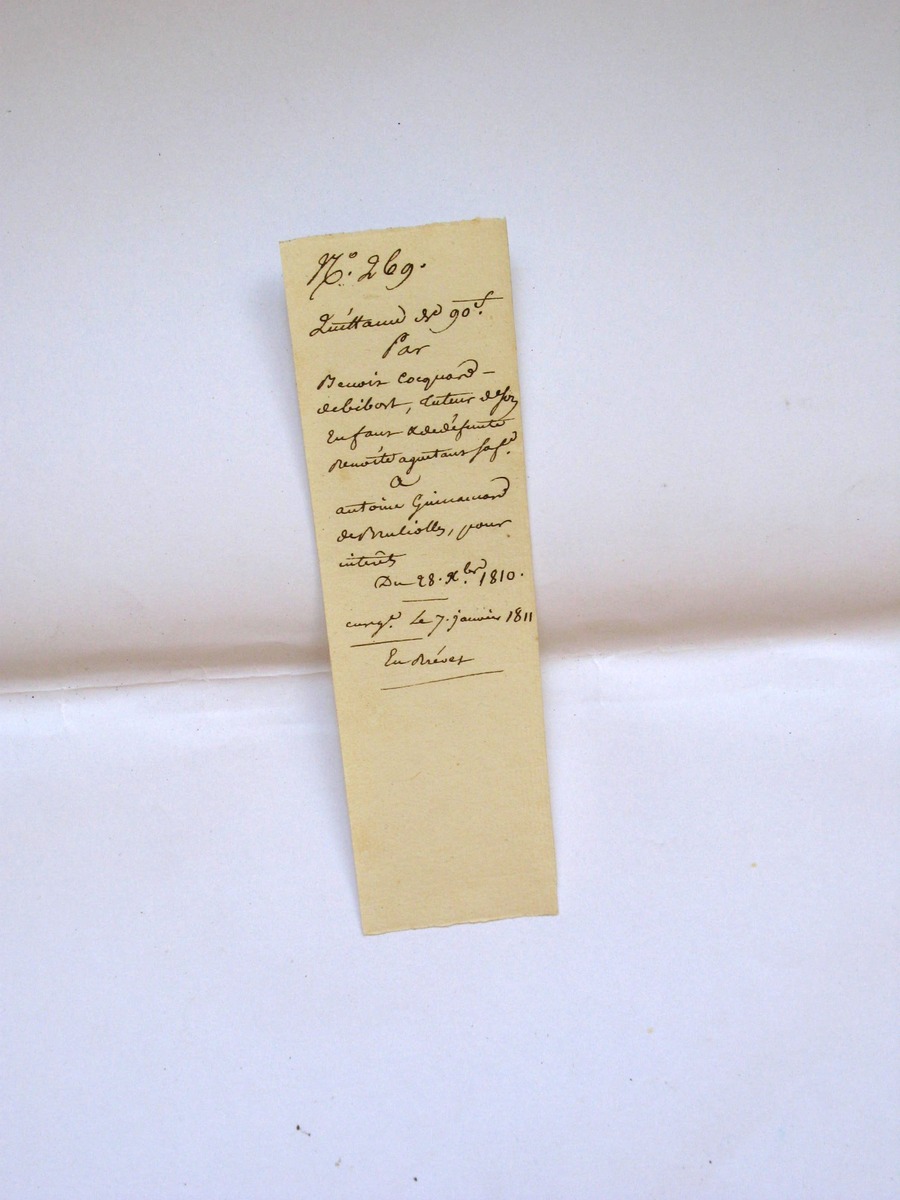 N.º 269.
Quittance de 90.f
Par
Benoit Cocquard
debibost, tuteur de son
Enfant & de défunte
Benoîte aguetant sa fe.
a
antoine Guinamard
de Bruliolles, pour
intérêts
Du 28. Xbre 1810.
enregé. Le 7. janvier 1811
En Brévet